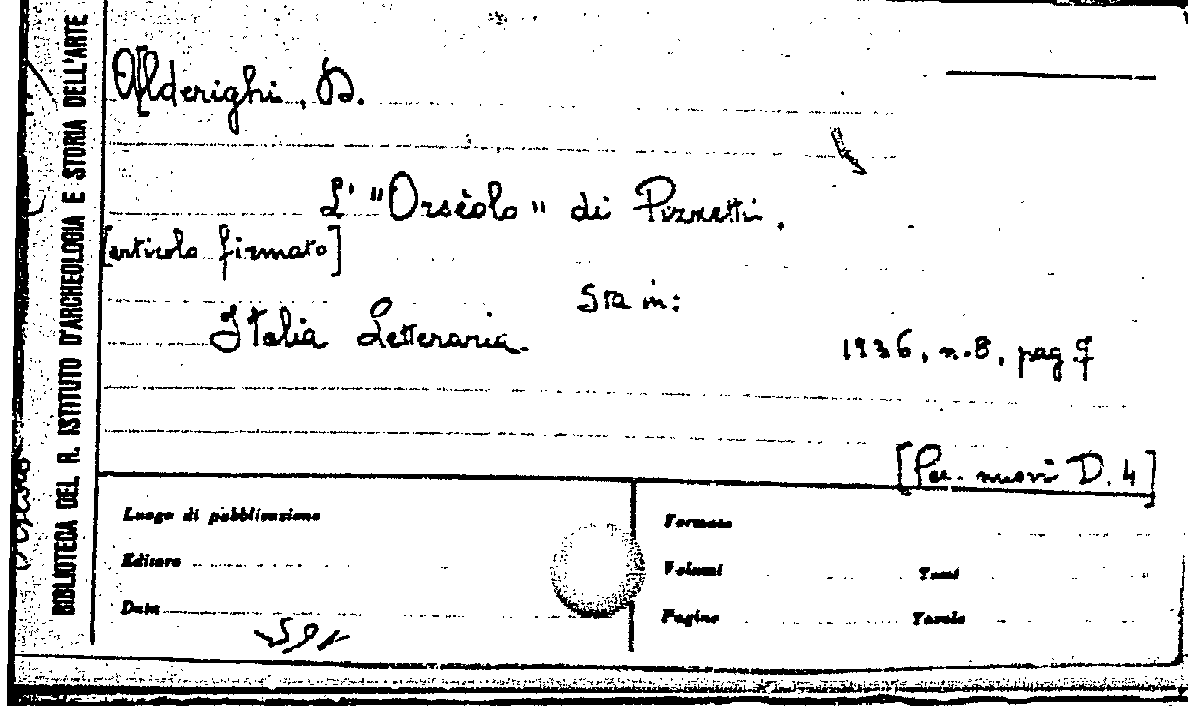 BIBLIOTECA DEL R. ISTITUTO D'ARCHEOLOGIA E STORIA DELL'ARTE
Alderighi, D.
L' "Orsèolo" di Pizzetti.
[articolo firmato]
Sta in:
Italia Letteraria.
1936, n. 8, pag
[Per. nuovi D. 4]
Luogo di pubblicazione
Formato
Editore
Volumi
Tomi
Data
Pagine
Tavole